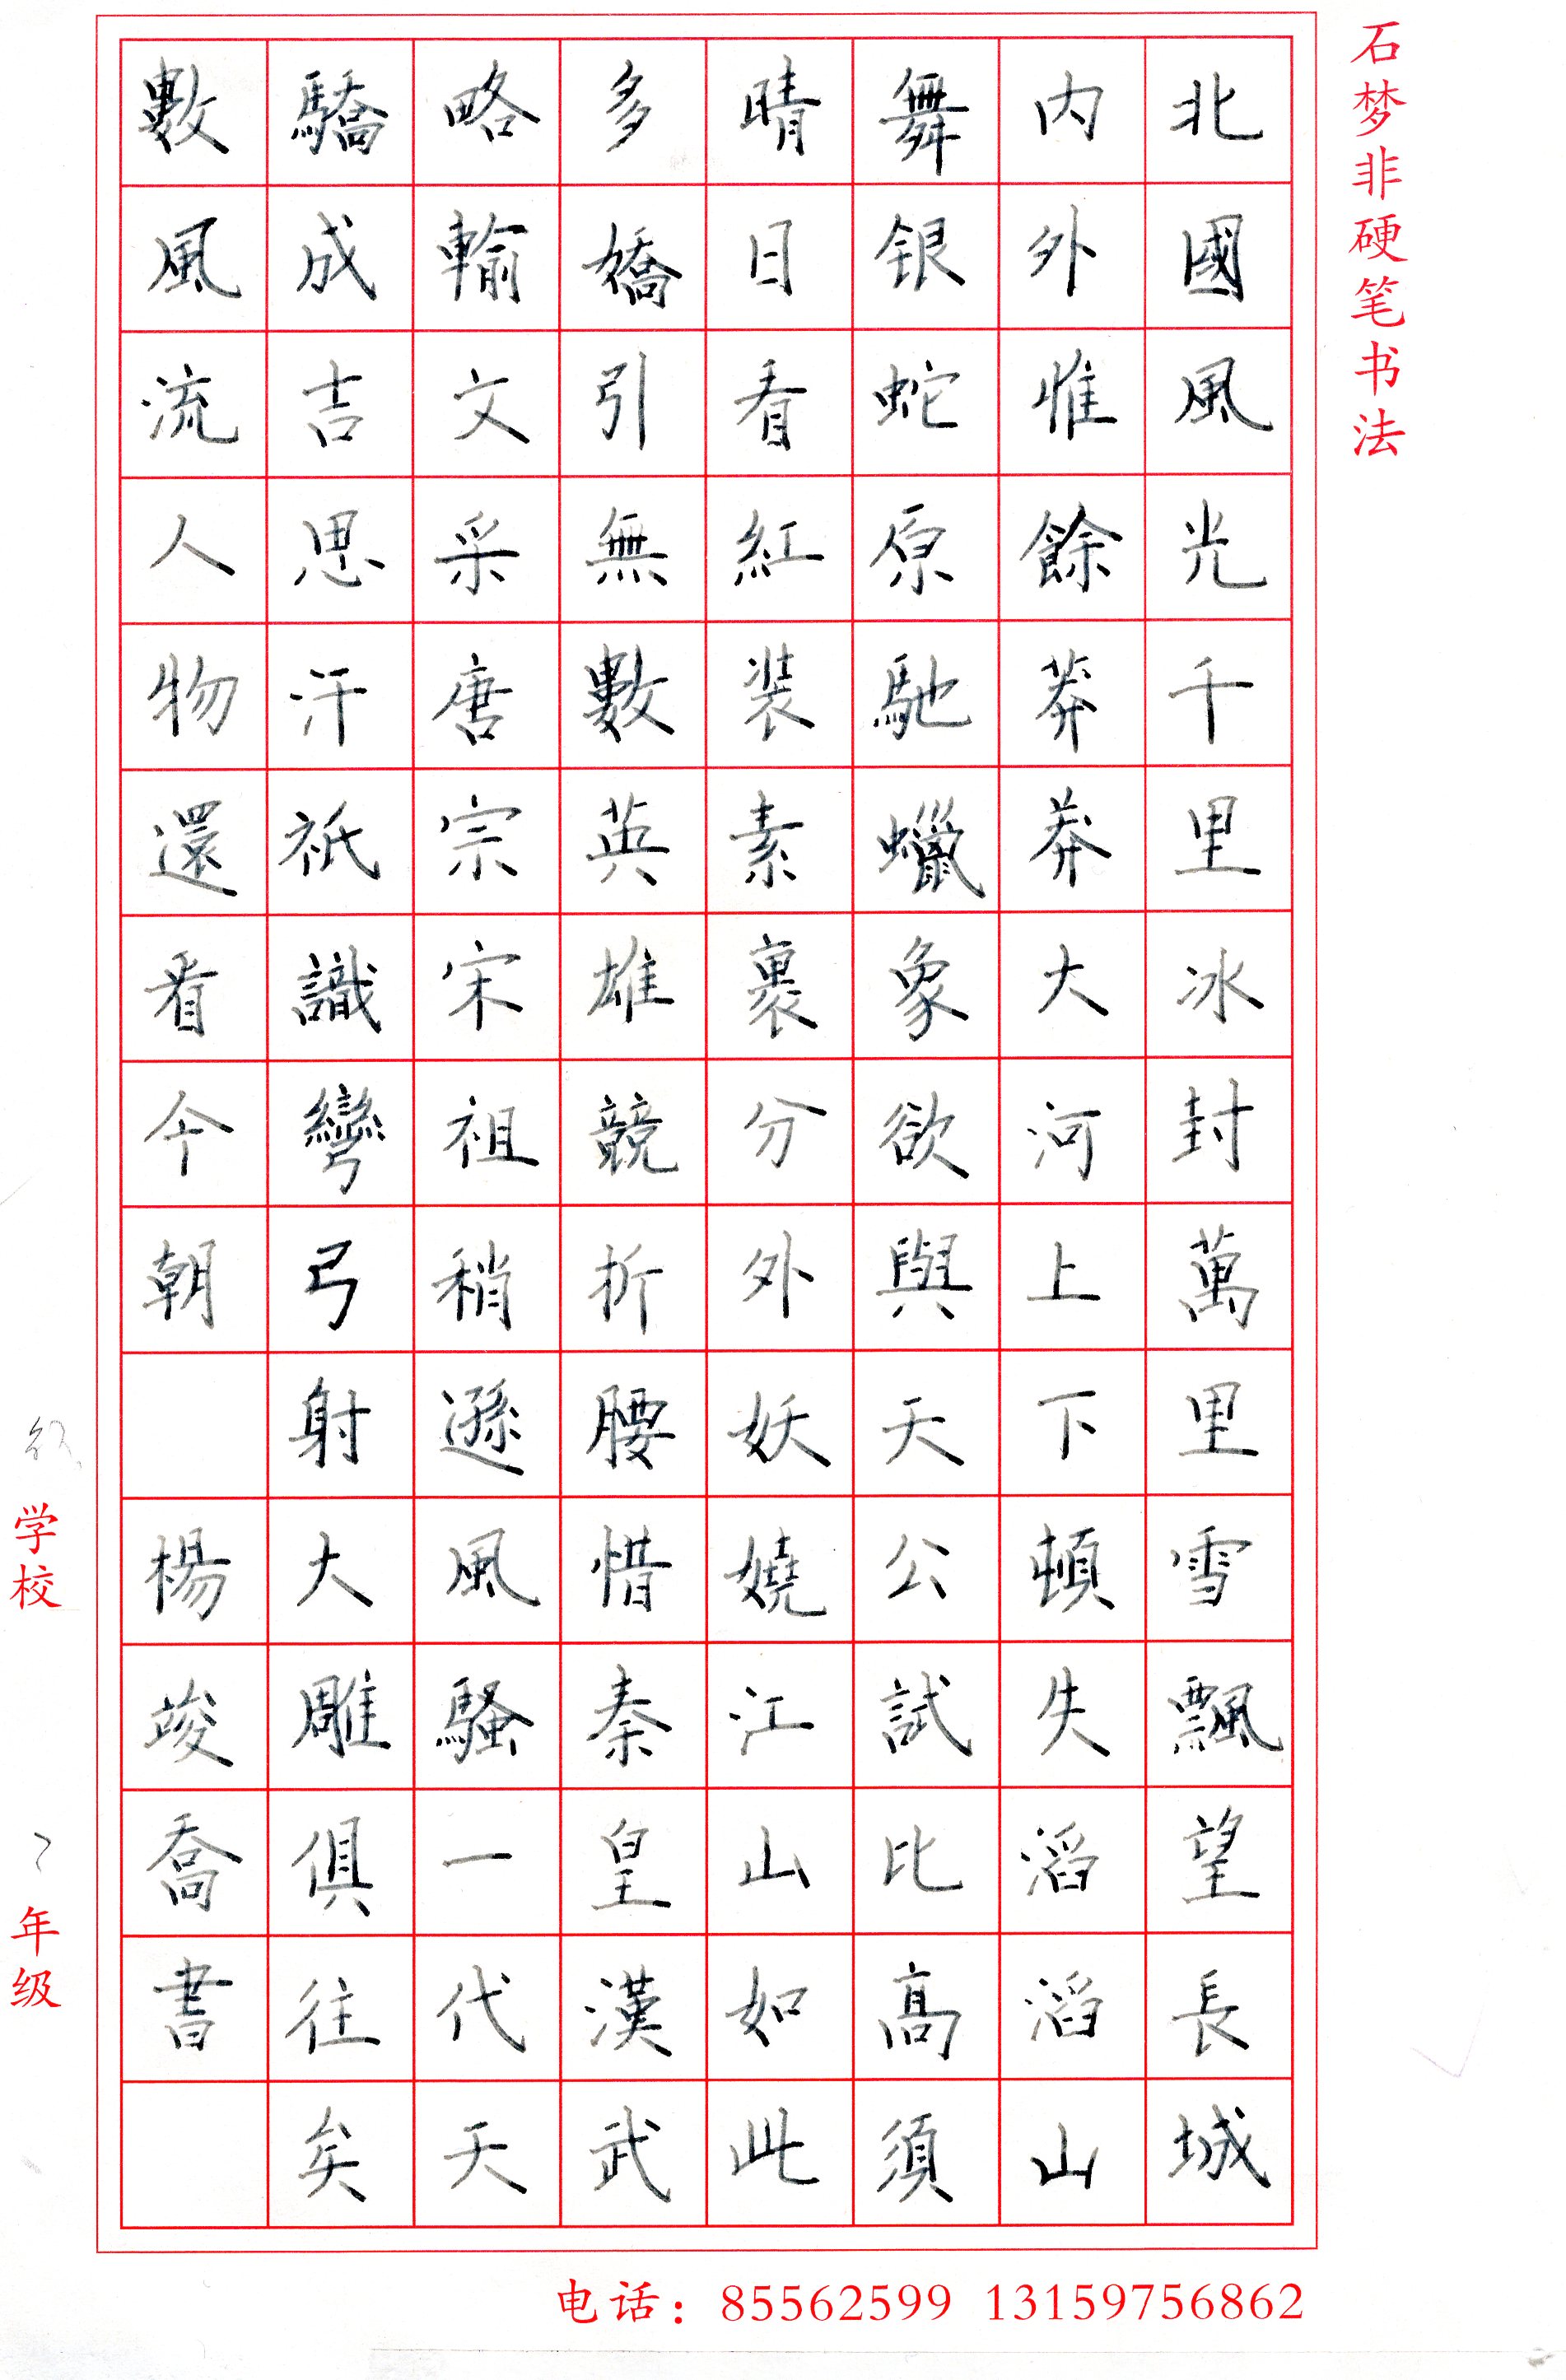 石梦非硬笔书法
北國風光千里冰封萬里雪飄望長城
内外惟餘莽莽大河上下頓失滔滔山
舞银蛇原馳蠟象欲與天公試比高須
晴日看紅装素裹分外妖嬈江山如此
多嬌引無數英雄競折腰惜秦皇漢武
略輸文采唐宗宋祖稍遜風騷一代天
驕成吉思汗祇識彎弓射大雕俱往矣
數風流人物還看今朝 楊竣喬書
学校
年级
电话：85562599 13159756862